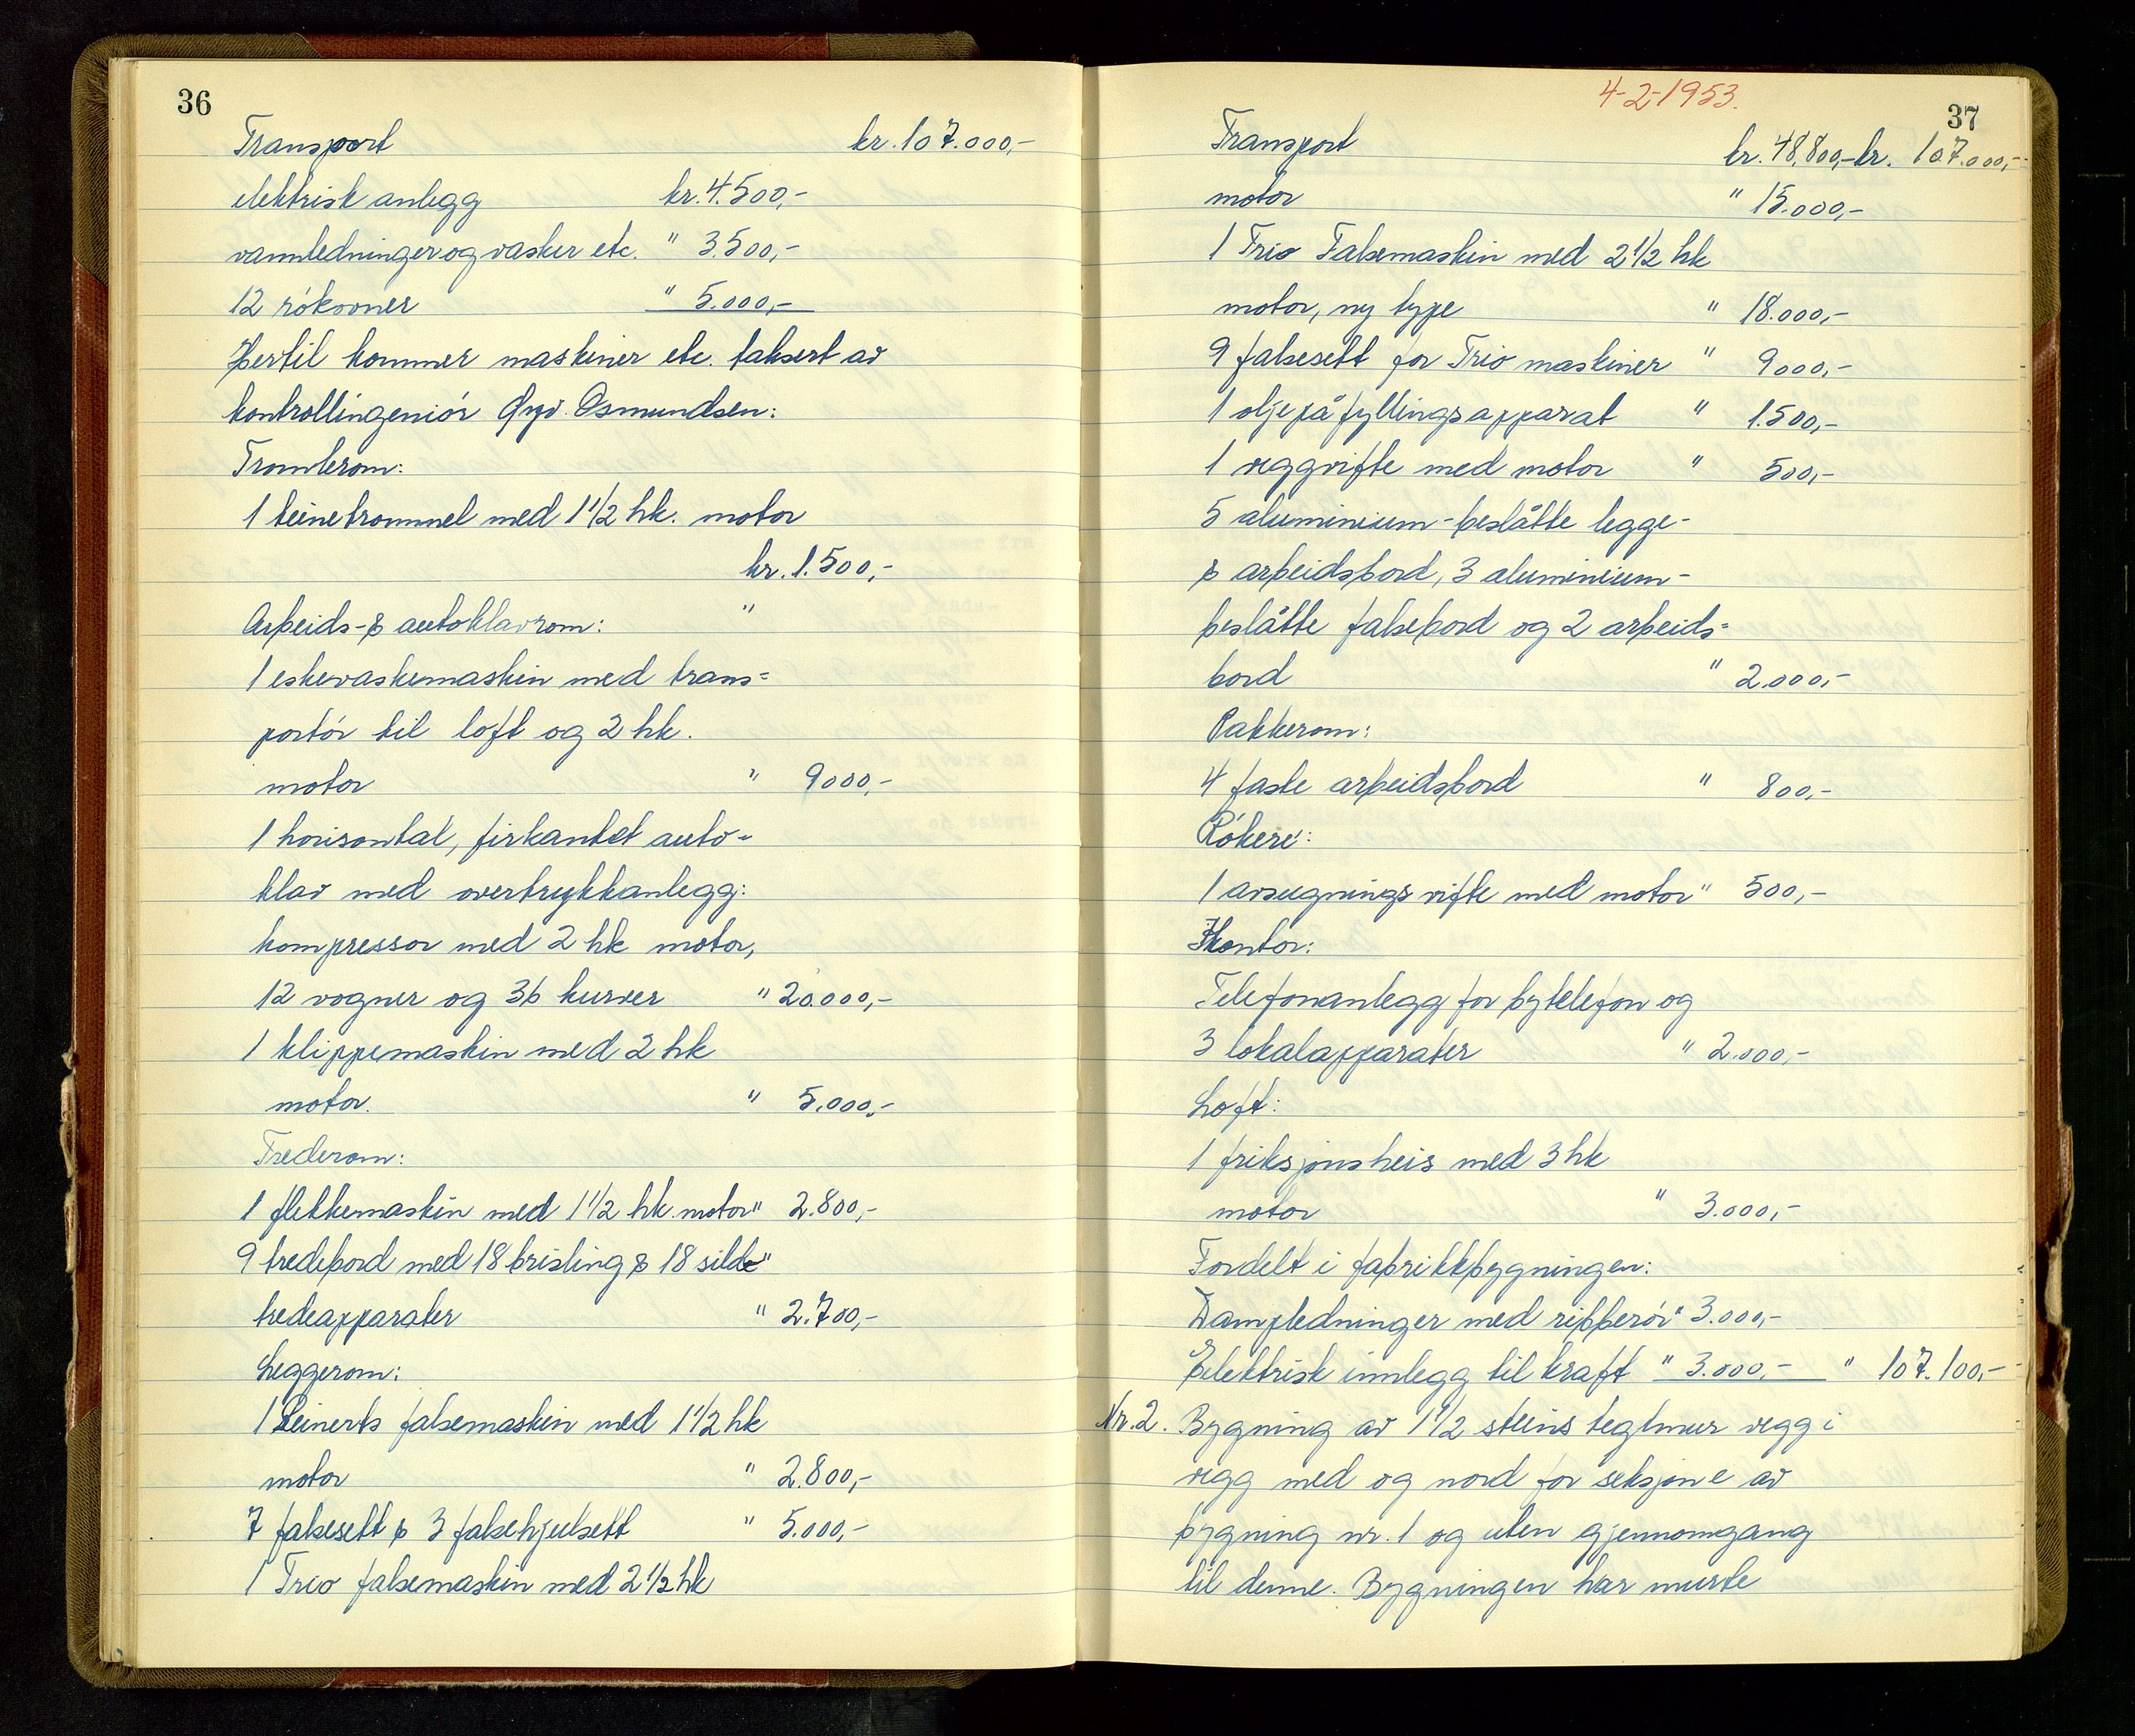 36
Transport kr. 107.000,-
elektrisk anlegg kr. 4.500,-
vannledninger og vasker etc. " 3.500,-
12 rökovner " 5.000,-
Hertil kommer maskiner etc. taksert av
kontrollingeniör Gyv. Osmundsen:
Tromlerom:
1 teinetrommel med 1 1/2 hk. motor
kr. 1.500,-
Arbeids- & autoklavrom: "
1 eskevaskemaskin med trans=
portör til loft og 2 hk.
motor " 9000,-
1 horisontal, firkantet auto=
klav med overtrykkanlegg:
kompressor med 2 hk motor,
12 vogner og 36 kurver " 20.000,-
1 klippemaskin med 2 hk
motor. " 5.000,-
Trederom:
1 flekkemaskin med 1 1/2 hk. motor " 2.800,-
9 tredebord med 18 brisling & 18 silde "
tredeapparater " 2.700,-
Leggerom:
1 Leinerts falsemaskin med 1 1/2 hk
motor " 2.800,-
7 falsesett & 3 falsehjulsett " 5.000,-
1 Trio falsemaskin med 2 1/2 hk
4-2-1953.
37
Transport kr. 48,800,- kr. 107.000,-
motor " 15.000,-
1 Trio Falsemaskin med 2 1/2 hk
motor, ny type " 18.000,-
9 falsesett for Trio maskiner " 9000,-
1 oljepåfyllingsapparat " 1.500,-
1 veggvifte med motor " 500,-
5 aluminium-beslåtte legge-
& arbeidsbord, 3 aluminium-
beslåtte falsebord og 2 arbeids=
bord " 2.000,-
Pakkerom:
4 faste arbeidsbord " 800,-
Rökeri:
1 avsugnings vifte med motor " 500,-
Kontor:
Telefonanlegg for bytelefon og
3 lokalapparater " 2.000,-
Loft:
1 friksjonsheis med 3 hk
motor " 3.000,-
Fordelt i fabrikkbygningen:
Dampledninger med ribberör " 3.000,-
Elektrisk innlegg til kraft " 3.000,- " 107.100,-
Nr. 2. Bygning av 1 1/2 steins teglmur vegg i
vegg med og nord for seksjon e av
bygning nr. 1 og uten gjennomgang
til denne. Bygningen har murte